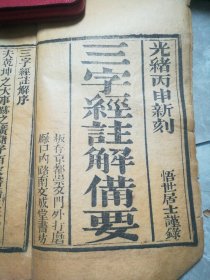 光緒丙申新刻
悟世居士謹錄
三字經註解備要
板存京都崇文門外打磨
廠口內路南文成堂書坊
三字經註解序